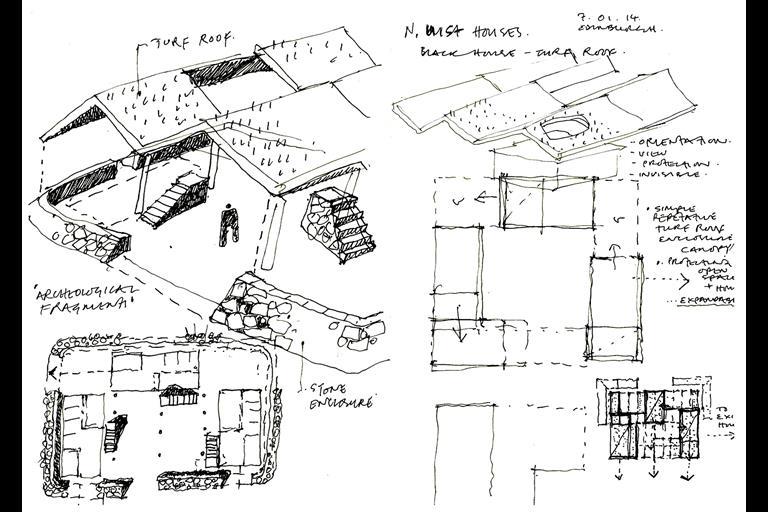 TURF ROOF.
'ARCHEOLOGICAL
FRAGMENT'
STONE
ENCLOSURE
N. UIST HOUSES.
7.01.14.
EDINBURGH.
BLACK HOUSE - TURF ROOF.
- ORIENTATION.
- VIEW
- PROTECTION.
- INVISIBLE.
• SIMPLE
REPETATIVE
TURF ROOF
ENCLOSURE
CANOPY/
• PROTECTING
OPEN
SPACE
+
...EXPANDAB
TO
EXI